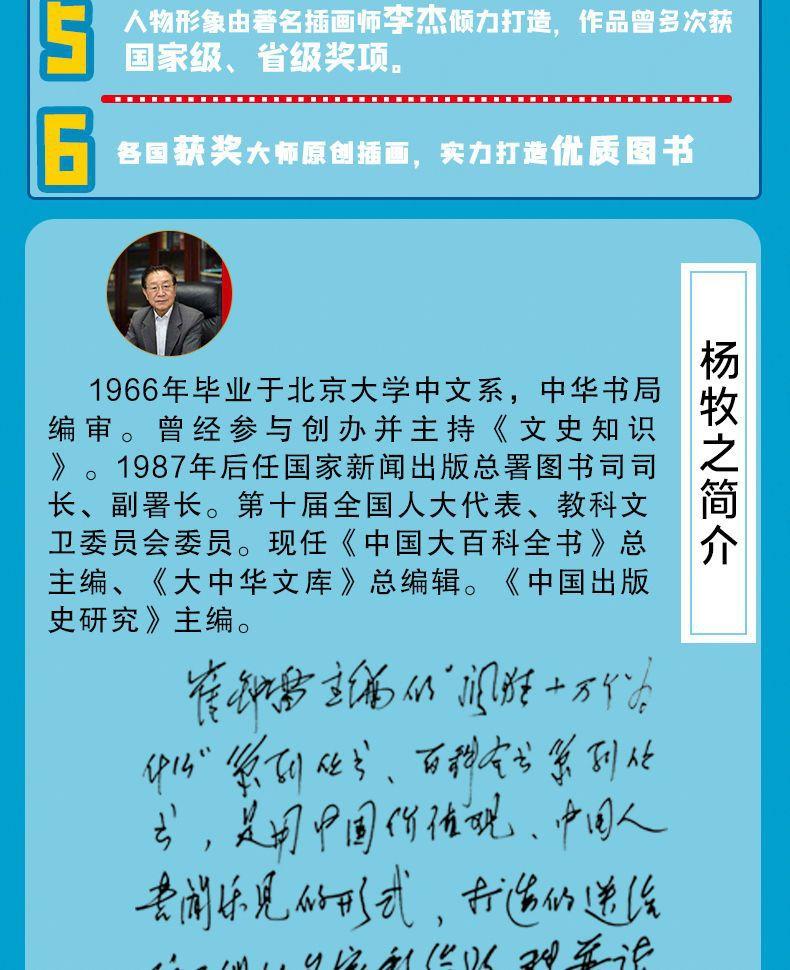 5
人物形象由著名插画师李杰倾力打造，作品曾多次获
国家级、省级奖项。
6
各国获奖大师原创插画，实力打造优质图书
杨牧之简介
1966年毕业于北京大学中文系，中华书局
编审。曾经参与创办并主持《文史知识
》。1987年后任国家新闻出版总署图书司司
长、副署长。第十届全国人大代表、教科文
卫委员会委员。现任《中国大百科全书》总
主编、《大中华文库》总编辑。《中国出版
史研究》主编。
崔钟雷主编的“ 十万个为
什么”系列丛书、百科全书系列丛
书，是用中国价值观、中国人
喜闻乐见的形式，打造的送给